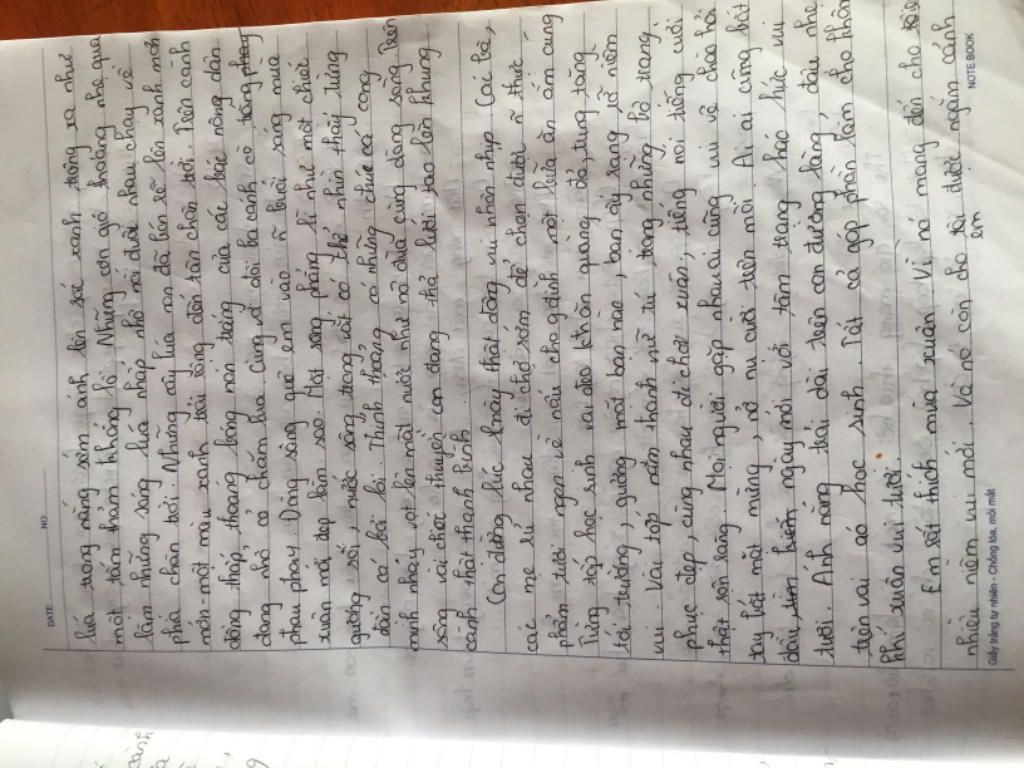 DATE
NO
lúa trong nắng sớm ánh lên sắc xanh trông xa như
một tấm thảm khổng lồ. Những cơn gió thoảng nhẹ qua
làm những sóng lúa nhấp nhô nối đuôi nhau chạy về
phía chân trời. Những cây lúa non đã bén rễ lên xanh mơn
mởn một màu xanh trải rộng đến tận chân trời. Trên cánh
đồng thấp, thoáng bóng nón trắng của các bác nông dân
đang nhổ cỏ chăm lúa. Cùng với đôi ba cánh cò trắng phau
phau phau. Dòng sông quê em vào ~ buổi sáng mùa
xuân mới đẹp làm sao. Mặt sông phẳng lì như một chiếc
gương soi, nước sông trong vắt có thể nhìn thấy từng
đàn cá bơi lội. Thỉnh thoảng, có những chức cá cong
mình nhảy vọt lên mặt nước như nô đùa cùng dòng sông. Trên
sông vài chiếc thuyền con đang thả lưới tạo lên khung
cảnh thật thanh bình
Con đường lúc này thật đông vui nhộn nhịp. Các bà,
các mẹ rủ nhau đi chợ sớm để chọn được ~ thức
phẩm tươi ngon về nấu cho gđình một bữa ăn ấm cúng
Từng tốp học sinh vai đeo khăn quàng đỏ, tung tăng
tới trường, gương mặt bạn nào, bạn ấy rạng rỡ niềm
vui. Vài tốp nam thanh nữ tú, trong những bộ trang
phục đẹp, cùng nhau đi chơi xuân, tiếng nói tiếng cười
thật sôn sang. Mọi người gặp nhau ai cũng vui vẻ chào hỏi
tay bắt mặt mừng, nở nụ cười trên môi. Ai ai cũng bắt
đầu ngày mới với tâm trạng háo hức vui
tươi. Ánh nắng trải dài trên con đường làng, đậu nhẹ
trên vai áo học sinh. Tất cả góp phần làm cho không
khí xuân vui tươi.
Em rất thích mùa xuân vì nó mang đến cho
nhiều niềm vui mới. Và nó còn cho tôi được ngắm cảnh
em
Giấy trắng tự nhiên - Chống lóa, mỏi mắt
NOTE BOOK